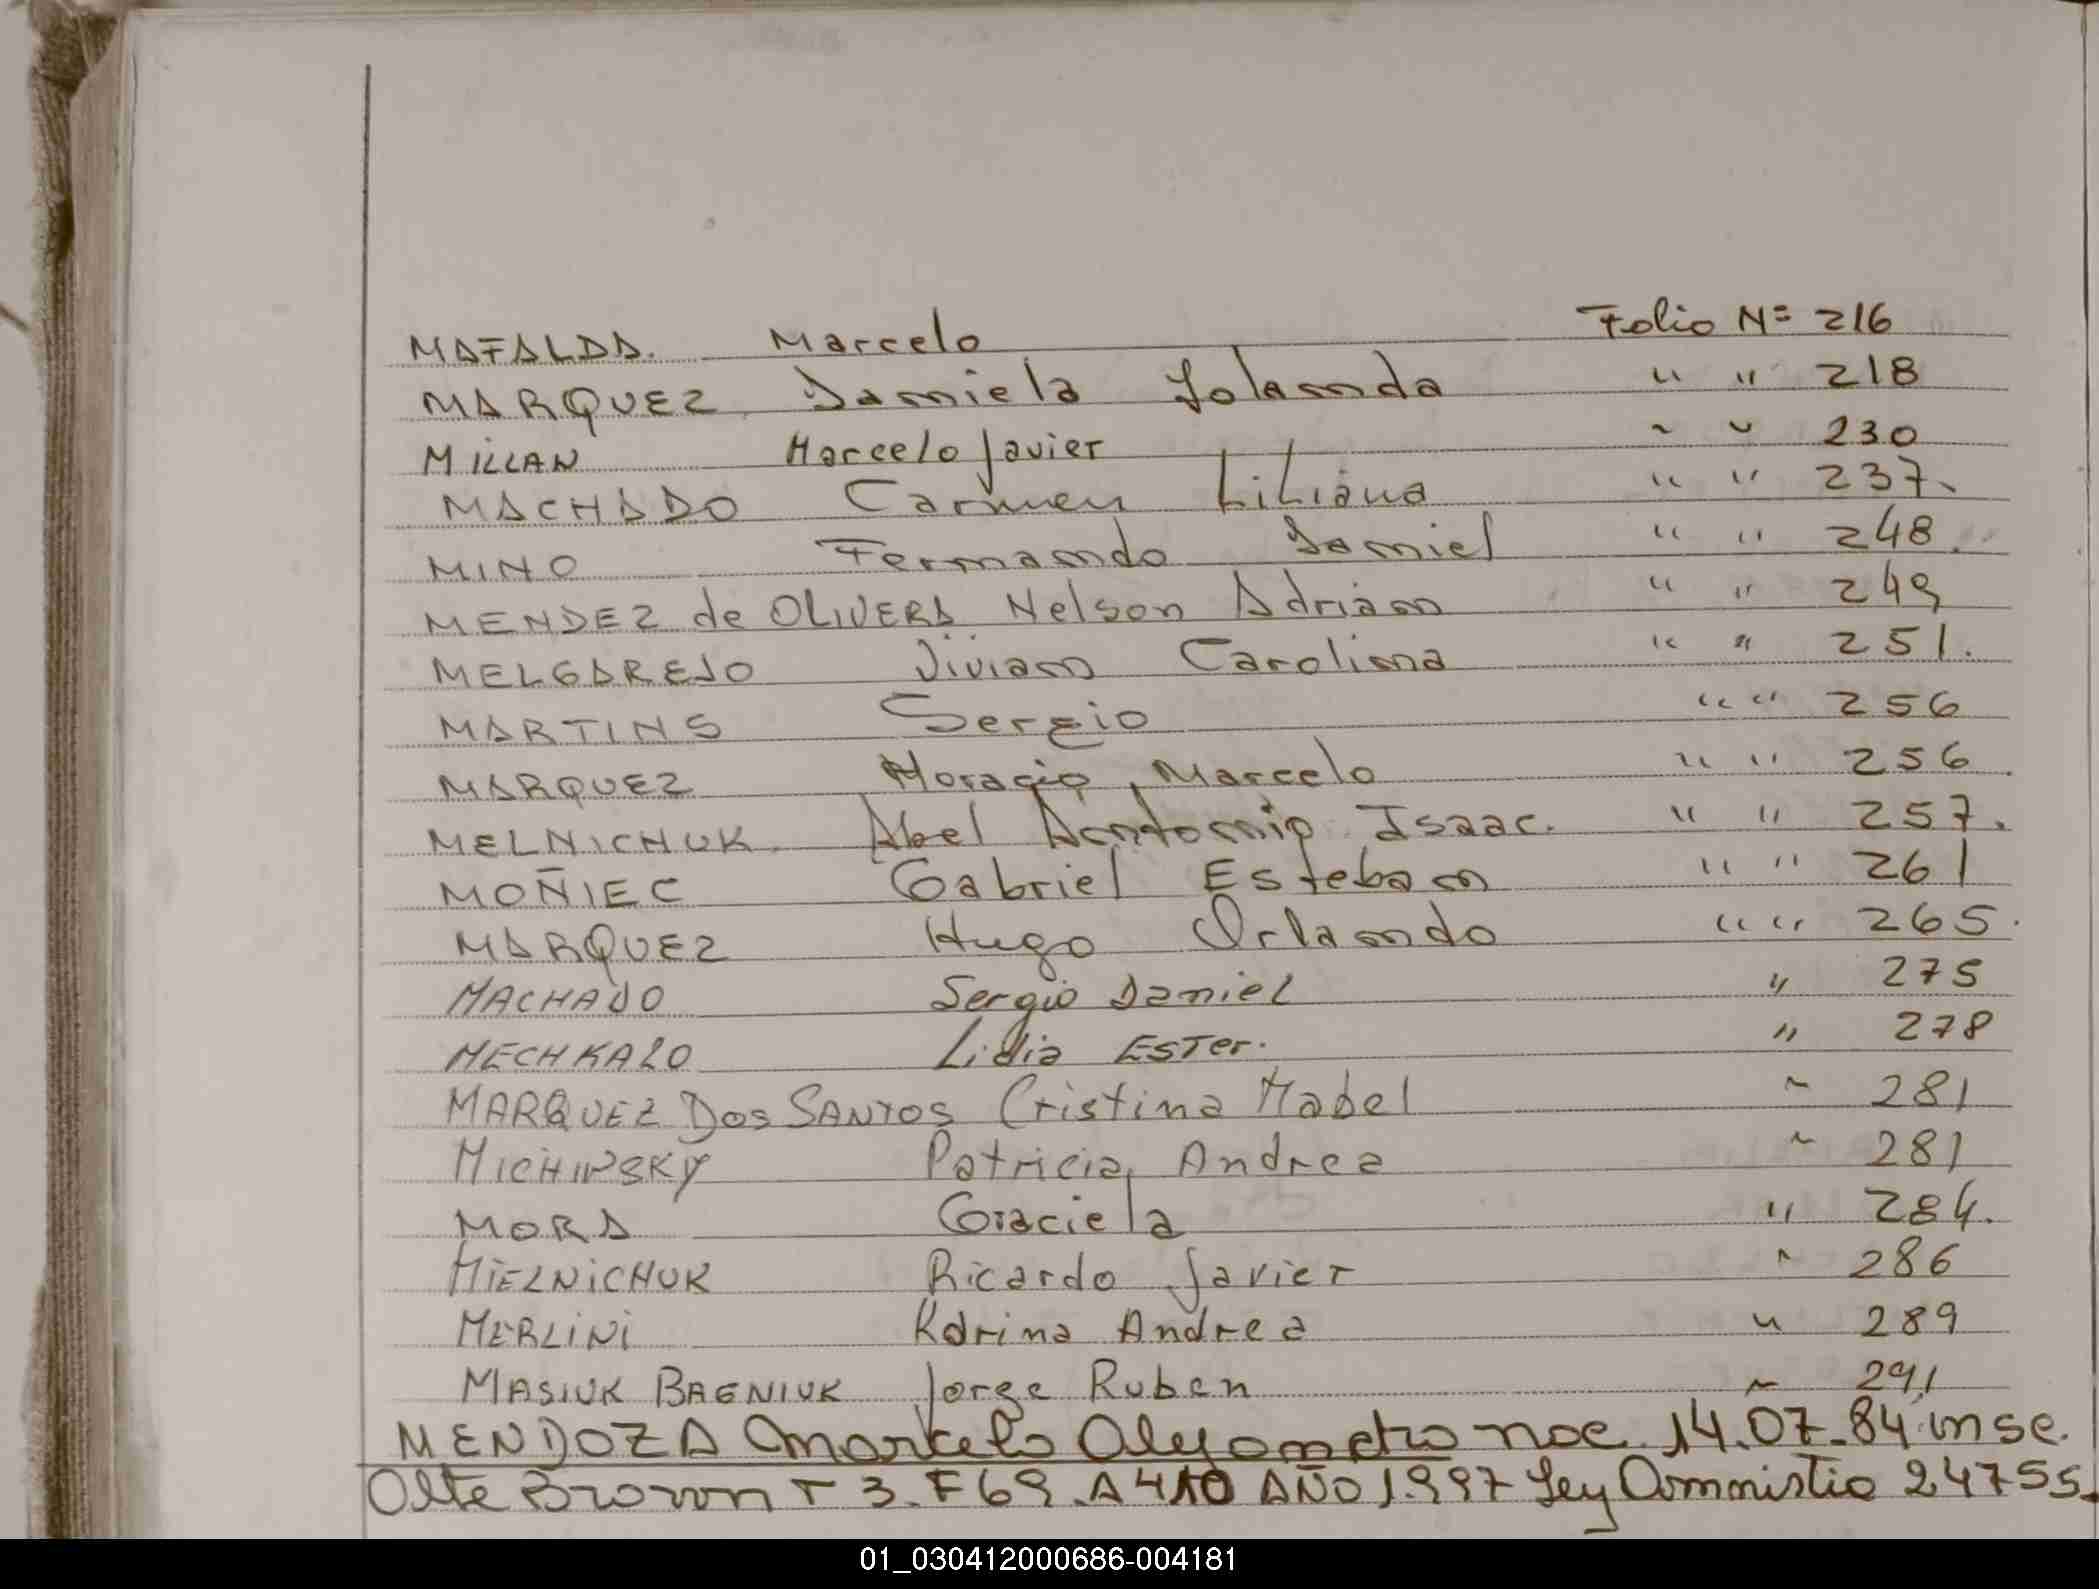 MAFALDA. Marcelo Folio Nº 216
MARQUEZ Daniela Yolanda " " 218
MILLAN Marcelo Javier " " 230
MACHADO Carmen Liliana " " 237.
MINO Fernando Daniel " " 248.
MENDEZ de OLIVERA Nelson Adrian " " 249
MELGAREJO Vivian Carolina " " 251.
MARTINS Sergio " " 256
MARQUEZ Horacio Marcelo " " 256.
MELNICHUK Abel Antonio Isaac. " " 257.
MOÑIEC Gabriel Esteban " " 261
MARQUEZ Hugo Orlando " " 265.
MACHADO Sergio Daniel " 275
MECHKALO Lidia Ester. " 278
MARQUEZ Dos SANTOS Cristina Mabel " 281
MICHINSKY Patricia Andrea " 281
MORA Graciela " 284.
MIELNICHUK Ricardo Javier " 286
MERLINI Karina Andrea " 289
MASIUK BAGNIUK Jorge Ruben " 291
MENDOZA Marcelo Alejandro nac. 14.07.84 insc.
Alte Brown T 3. F 69. A 410 AÑO 1.997 Ley Amnistia 24755.
01_030412000686-004181